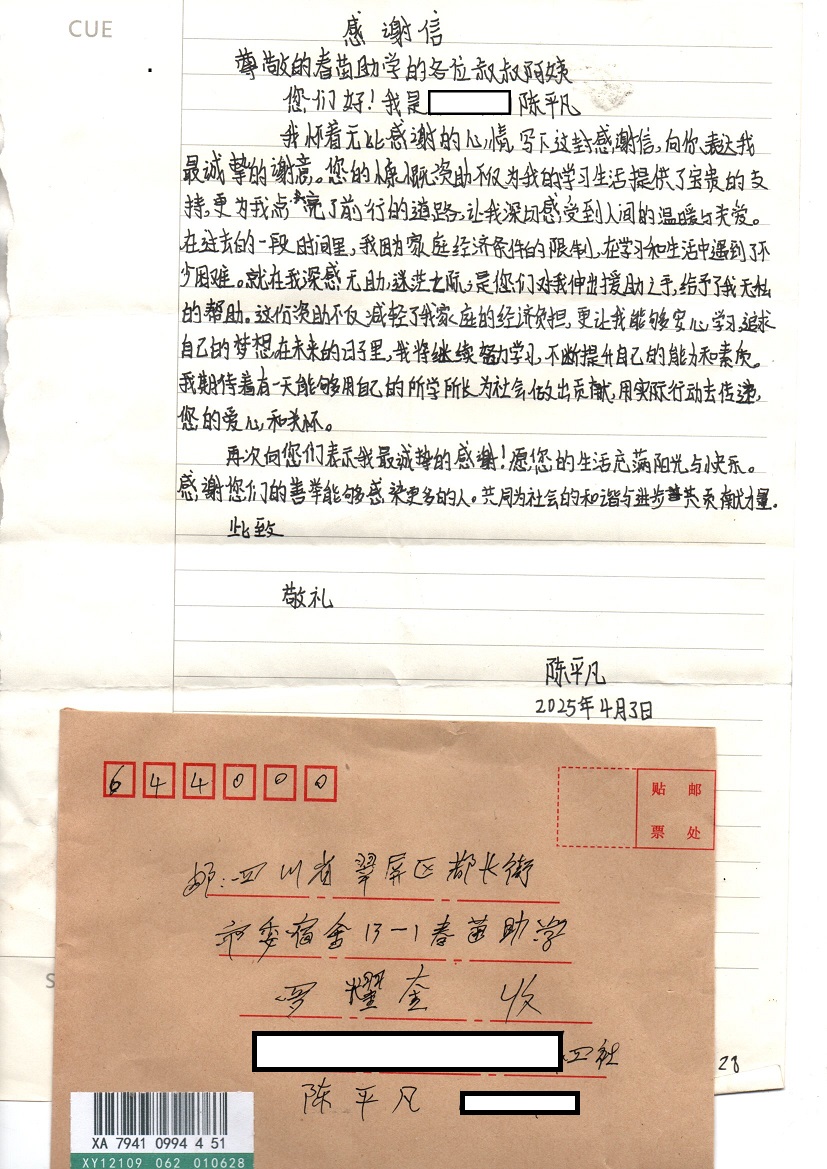 CUE
感谢信
尊敬的春苗助学的各位叔叔阿姨
您们好！我是 陈平凡
我怀着无比感谢的心情,写下这封感谢信,向你表达我
最诚挚的谢意。您的慷慨资助不仅为我的学习生活提供了宝贵的支
持,更为我点亮了前行的道路,让我深切感受到人间的温暖与关爱。
在过去的一段时间里,我因为家庭经济条件的限制,在学习和生活中遇到了不
少困难。就在我深感无助,迷茫之际,是您们对我伸出援助之手,给予了我无私
的帮助。这份资助不仅减轻了我家庭的经济负担,更让我能够安心学习,追求
自己的梦想,在未来的日子里,我将继续努力学习,不断提升自己的能力和素质。
我期待着有一天能够用自己的所学所长为社会做出贡献,用实际行动去传递,
您的爱心和关怀。
再次向您们表示我最诚挚的感谢！愿您的生活充满阳光与快乐。
感谢您们的善举能够感染更多的人。共同为社会的和谐与进步共贡献力量.
此致
敬礼
陈平凡
2025年4月3日
644000
贴 邮
票 处
邮:四川省翠屏区都长街
市委宿舍13-1春苗助学
罗耀奎 收
四社
28
陈平凡
XA 7941 0994 4 51
XY12109 062 010628